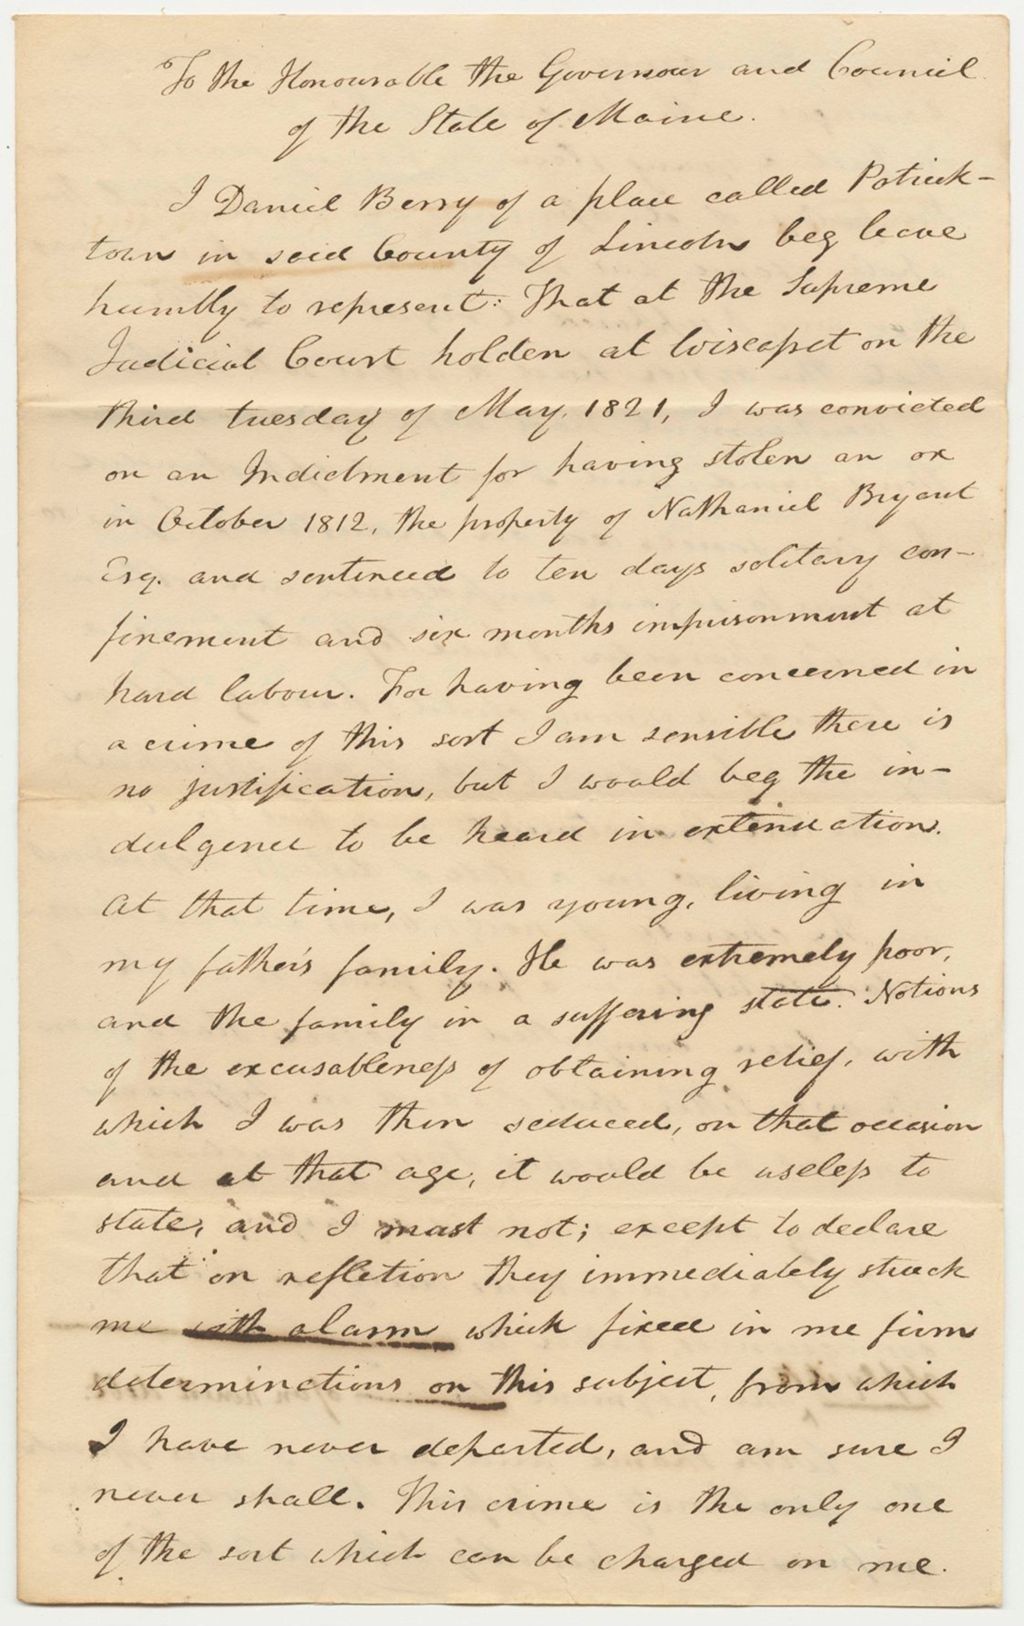 To the Honourable the Governour and Council
of the State of Maine.
I Daniel Berry of a place called Patrick-
town in said County of Lincoln beg leave
humbly to represent: That at the Supreme
Judicial Court holden at Wiscasset on the
third tuesday of May, 1821, I was convicted
on an Indictment for having stolen an ox
in October 1812, the property of Nathaniel Bryant
Esq. and sentenced to ten days solitary con-
finement and six months imprisonment at
hard labour. For having been concerned in
a crime of this sort I am sensible there is
no justification, but I would beg the in-
dulgence to be heard in extenuation.
At that time, I was young, living in
my father's family. He was extremely poor,
and the family in a suffering state. Notions
of the excusableness of obtaining relief, with
which I was then seduced, on that occasion
and at that age, it would be useless to
state, and I must not; except to declare
that on refletion they immediately struck
me with alarm which fixed in me firm
determinctions on this subject, from which
I have never departed, and am sure I
never shall. This crime is the only one
of the sort which can be charged on me.